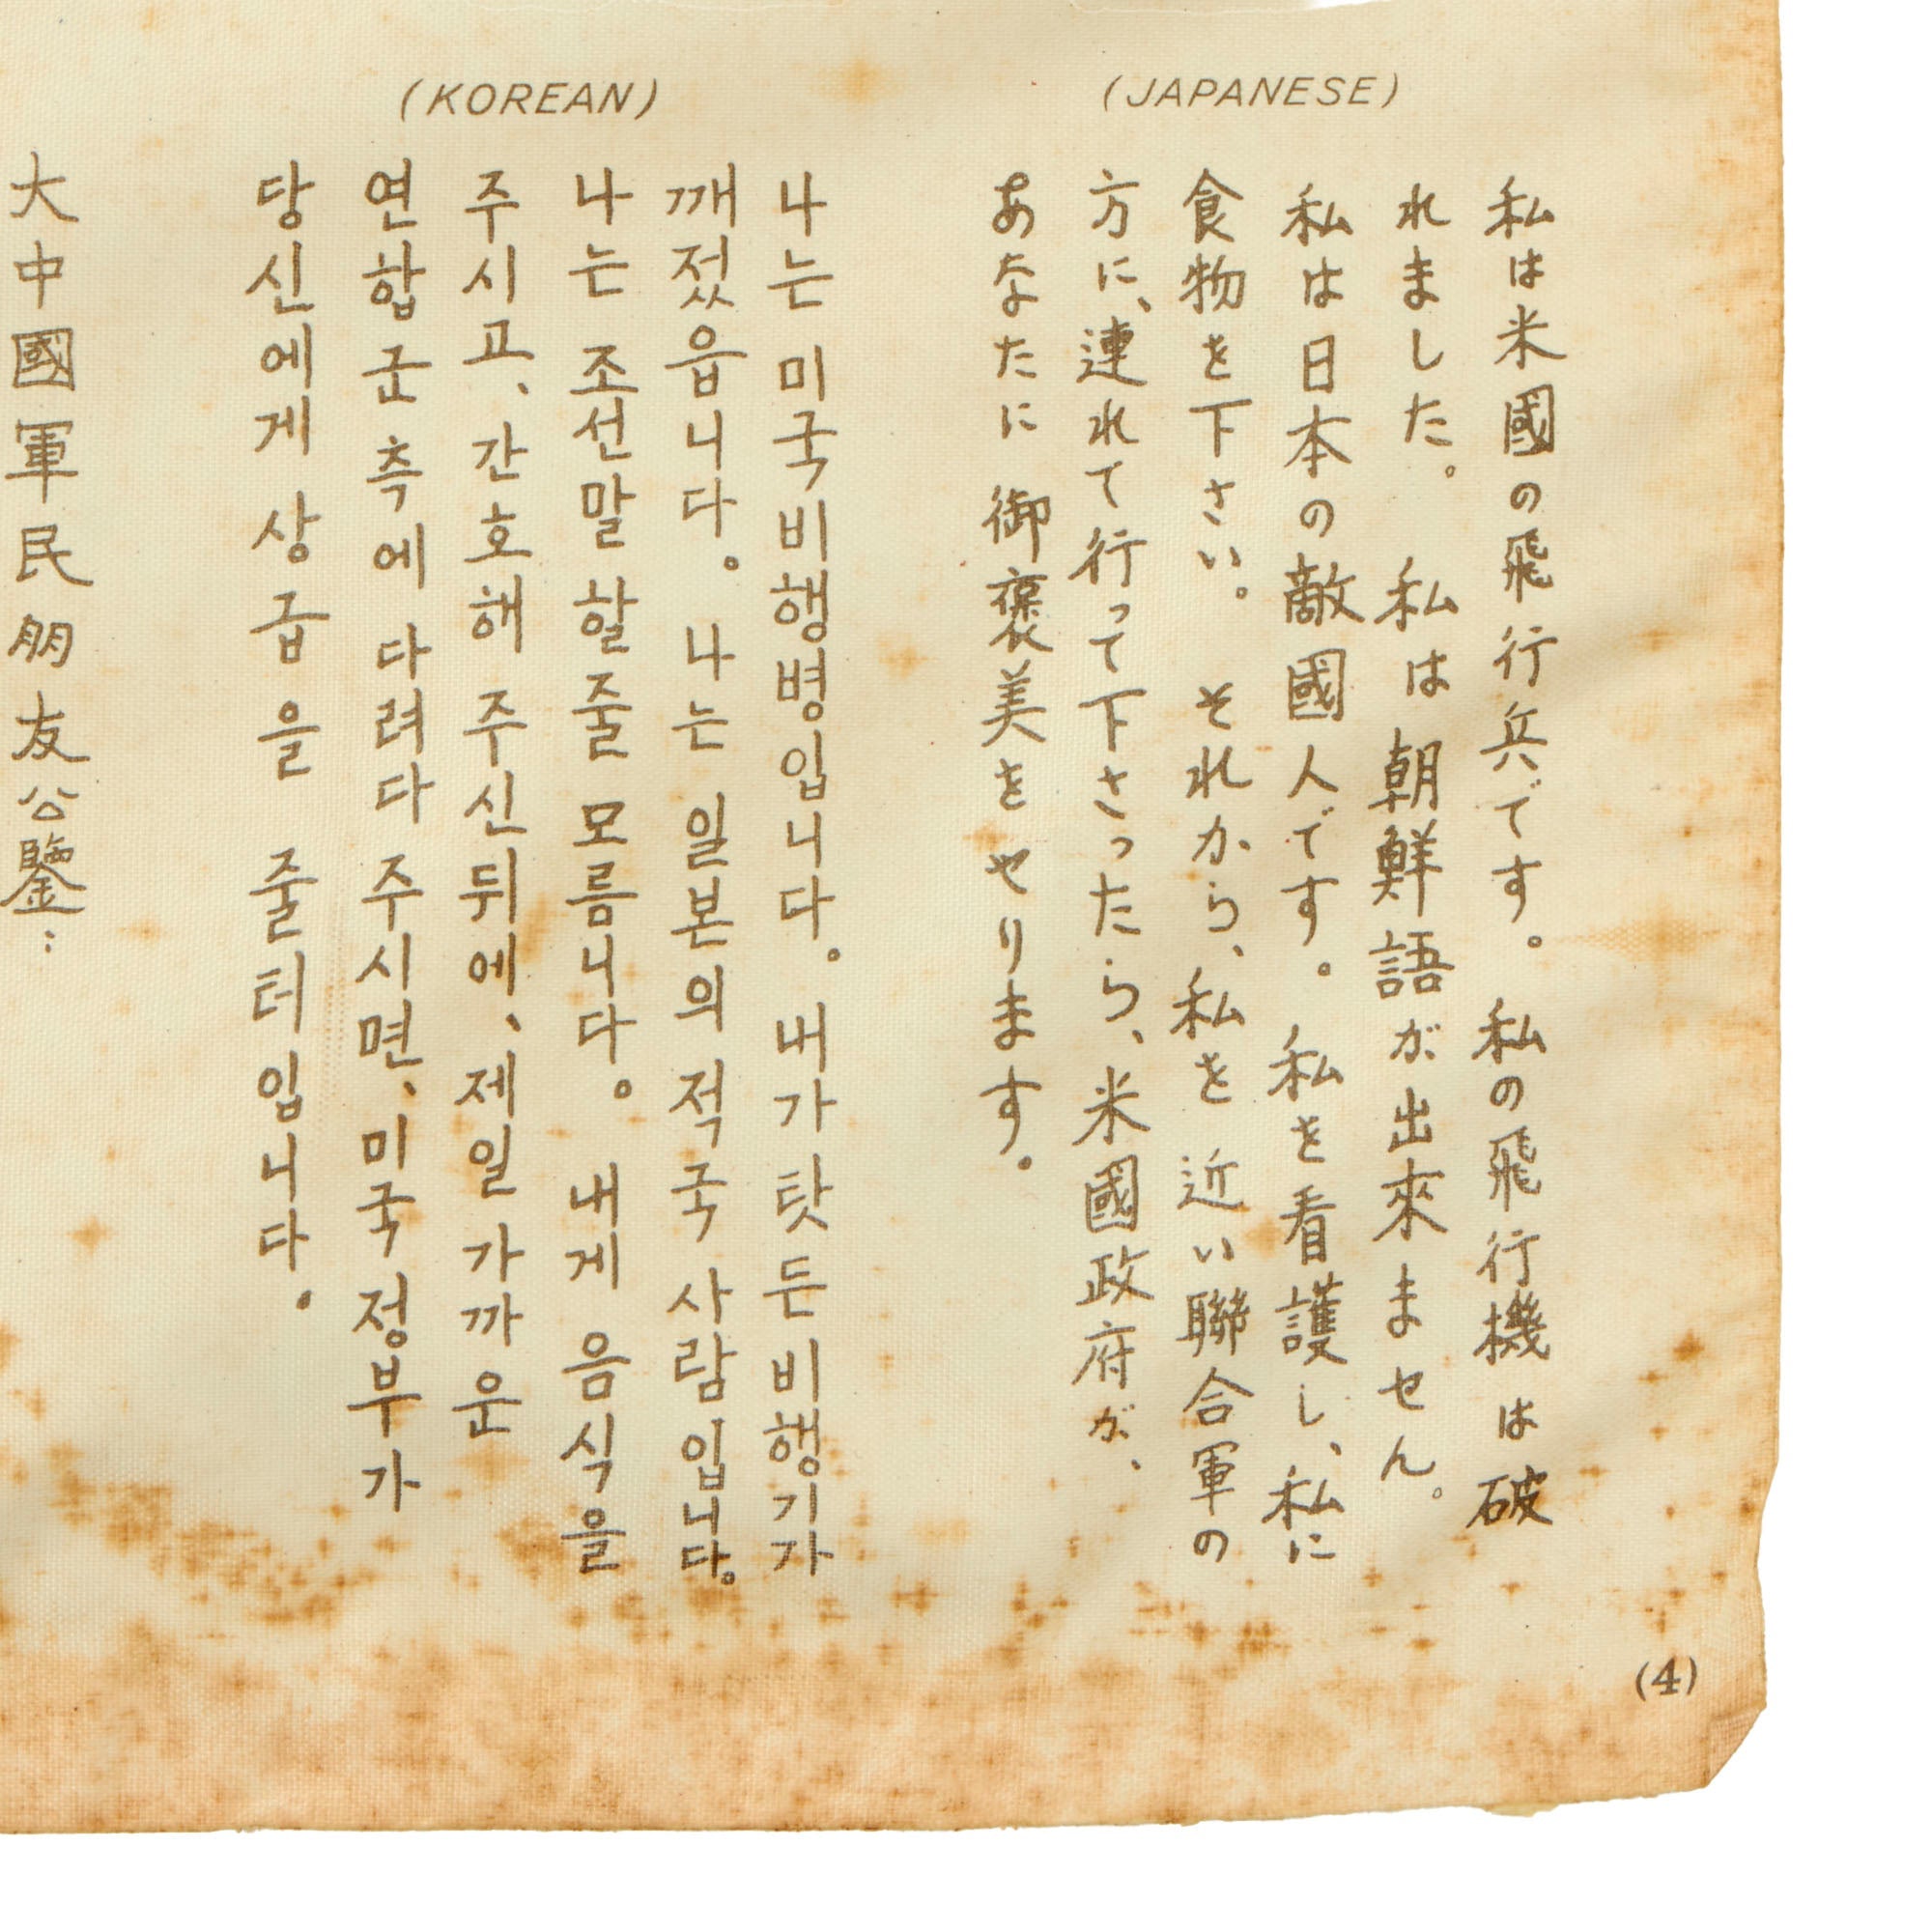 (JAPANESE)
私は米國の飛行兵です。 私の飛行機は破
れました。 私は朝鮮語が出來ません。
私は日本の敵國人です。 私を看護し、私に
食物を下さい。 それから、私を近い聯合軍の
方に、連れて行って下さったら、米國政府が、
あなたに御褒美をやります。
(KOREAN)
나는 미국비행병입니다。 내가 탓든 비행기가
깨젔읍니다。 나는 일본의 적국 사람입니다。
나는 조선말 할줄 모름니다。 내게 음식을
주시고、간호해 주신뒤에、제일 가까운
연합군측에 다려다 주시면、미국정부가
당신에게 상급을 줄터입니다。
大中國軍民朋友公鑒：
(4)